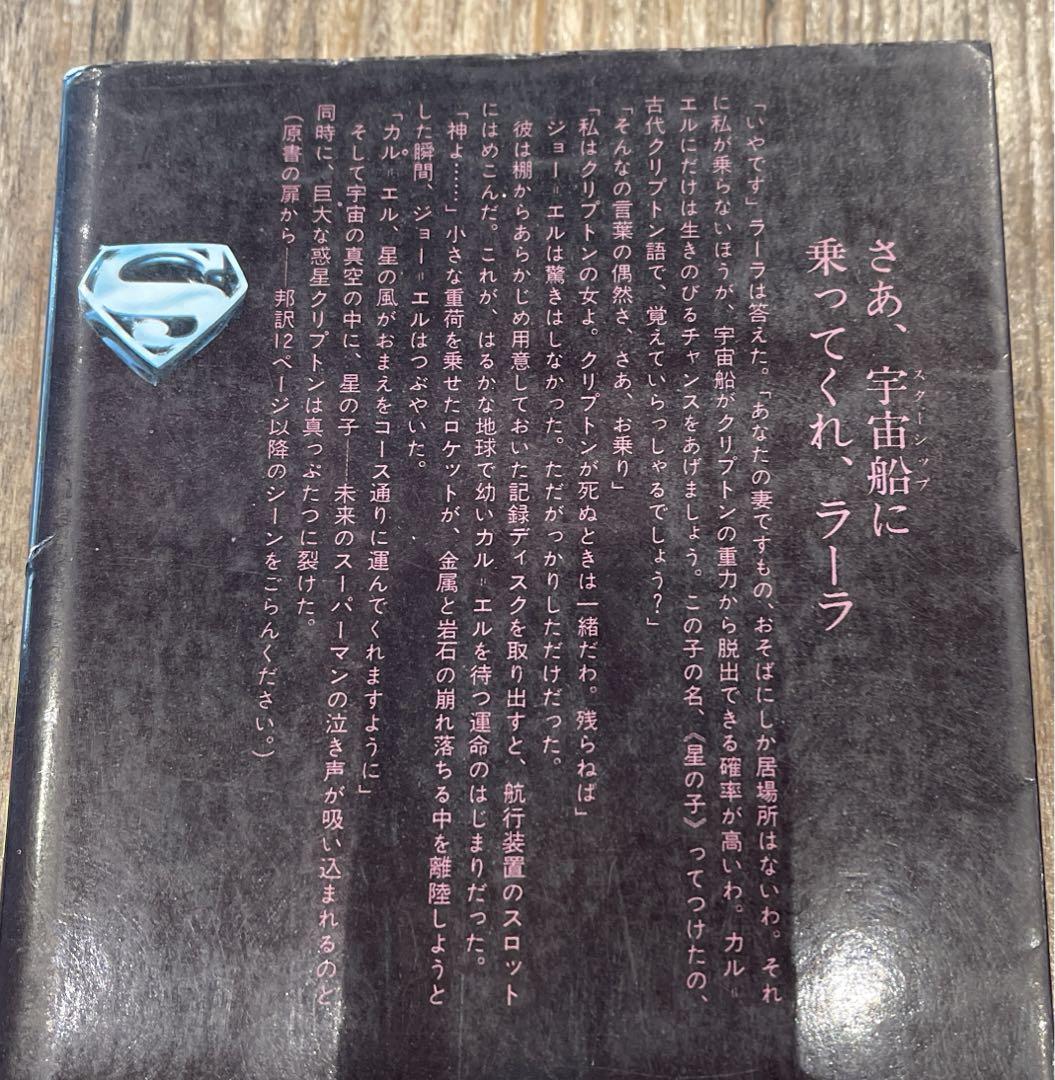 さあ、宇宙船に
スターシップ
乗ってくれ、ラーラ
「いやです」ラーラは答えた。「あなたの妻ですもの、おそばにしか居場所はないわ。それ
に私が乗らないほうが、宇宙船がクリプトンの重力から脱出できる確率が高いわ。カル＝
エルにだけは生きのびるチャンスをあげましょう。この子の名、《星の子》ってつけたの、
古代クリプトン語で、覚えていらっしゃるでしょう？」
「そんなの言葉の偶然さ、さあ、お乗り」
「私はクリプトンの女よ。クリプトンが死ぬときは一緒だわ。残らねば」
ジョー＝エルは驚きはしなかった。ただがっかりしただけだった。
彼は棚からあらかじめ用意しておいた記録ディスクを取り出すと、航行装置のスロット
にはめこんだ。これが、はるかな地球で幼いカル＝エルを待つ運命のはじまりだった。
「神よ……」小さな重荷を乗せたロケットが、金属と岩石の崩れ落ちる中を離陸しようと
した瞬間、ジョー＝エルはつぶやいた。
「カル＝エル、星の風がおまえをコース通りに運んでくれますように」
そして宇宙の真空の中に、星の子――未来のスーパーマンの泣き声が吸い込まれるのと
同時に、巨大な惑星クリプトンは真っぷたつに裂けた。
（原書の扉から――邦訳12ページ以降のシーンをごらんください。）
S